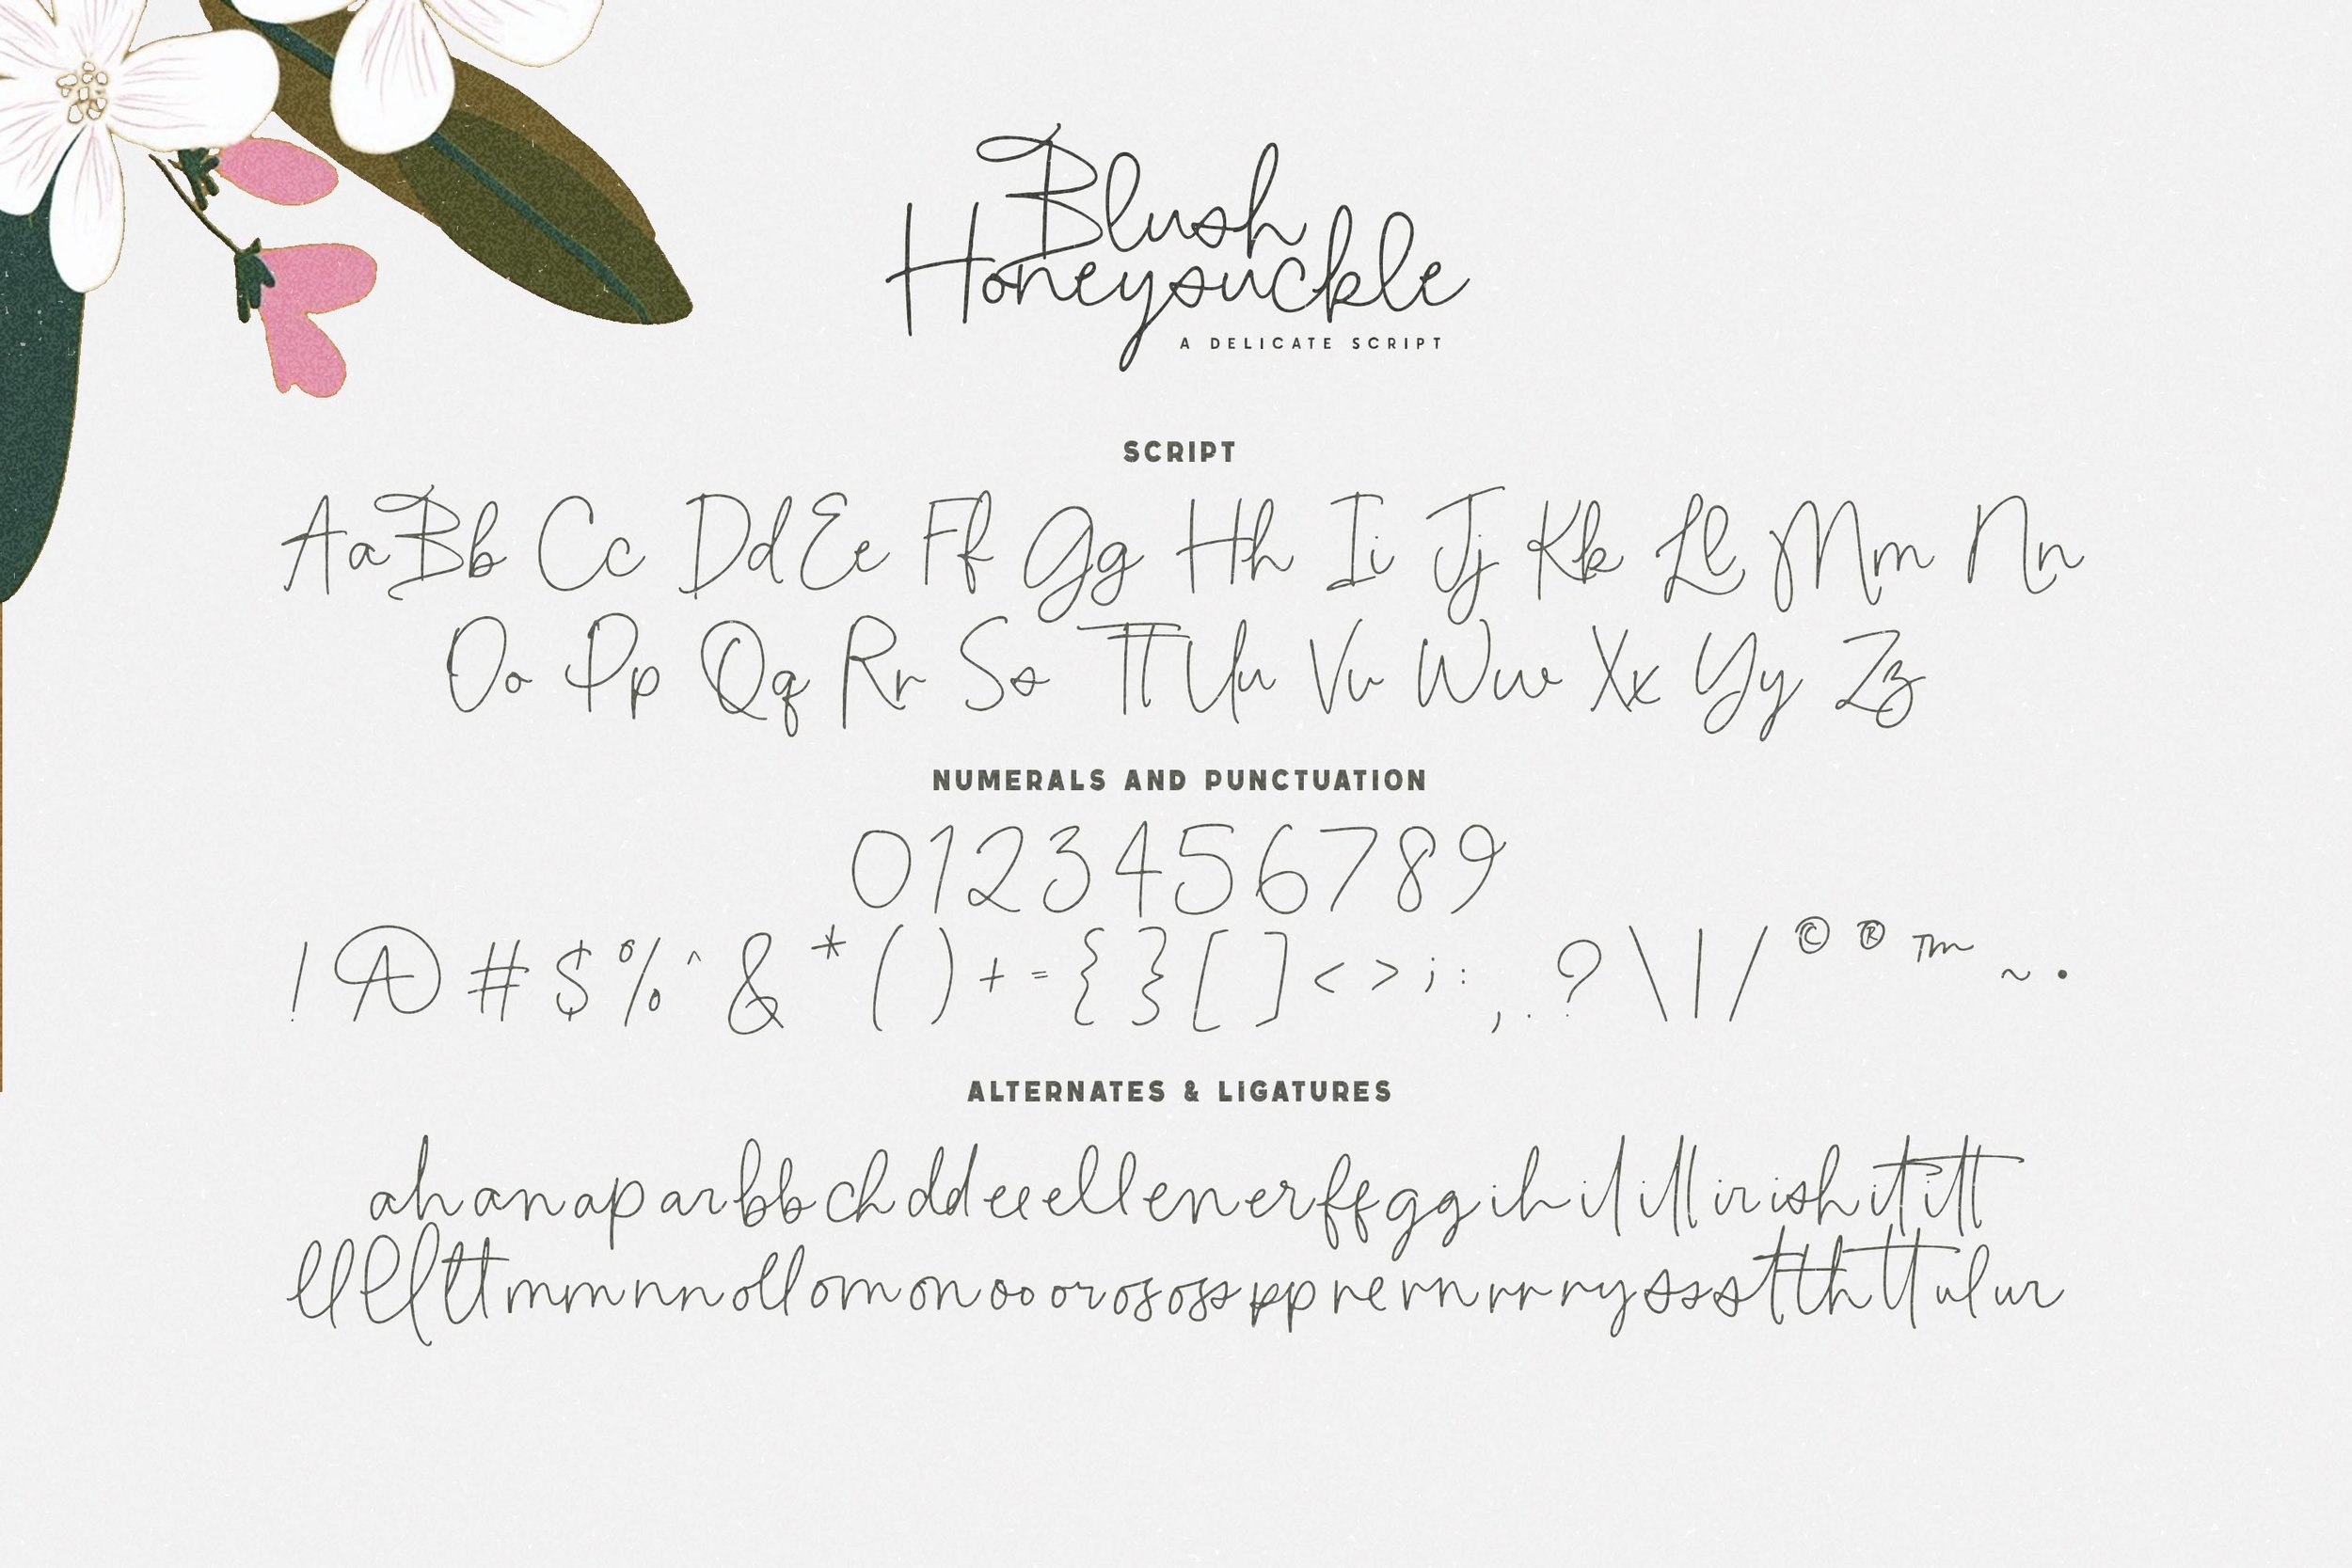 Blush
Honeysuckle
A DELICATE SCRIPT
SCRIPT
Aa Bb Cc Dd Ee Ff Gg Hh Ii Jj Kk Ll Mm Nn
Oo Pp Qq Rr Ss Tt Uu Vv Ww Xx Yy Zz
NUMERALS AND PUNCTUATION
0123456789
! @ # $ % ^ & * ( ) + = { } [ ] < > ; : , . ? \ | / © ® ™ ~ •
ALTERNATES & LIGATURES
ah an ap ar bb ch dd ee ell en er ff gg ih il ill ir ish it itt
mm nn oll om on oo or os oss pp re rn rr ry ss st th tt ul ur